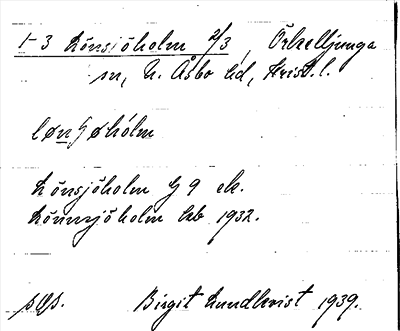 1-3 Lönsjöholm 2/3, Örkelljunga
sn, N. Åsbo hd, Krist. l.
Lönsjöholm G 9 ek.
Lönnsjöholm kb 1932.
Birgit Lundkvist 1939.